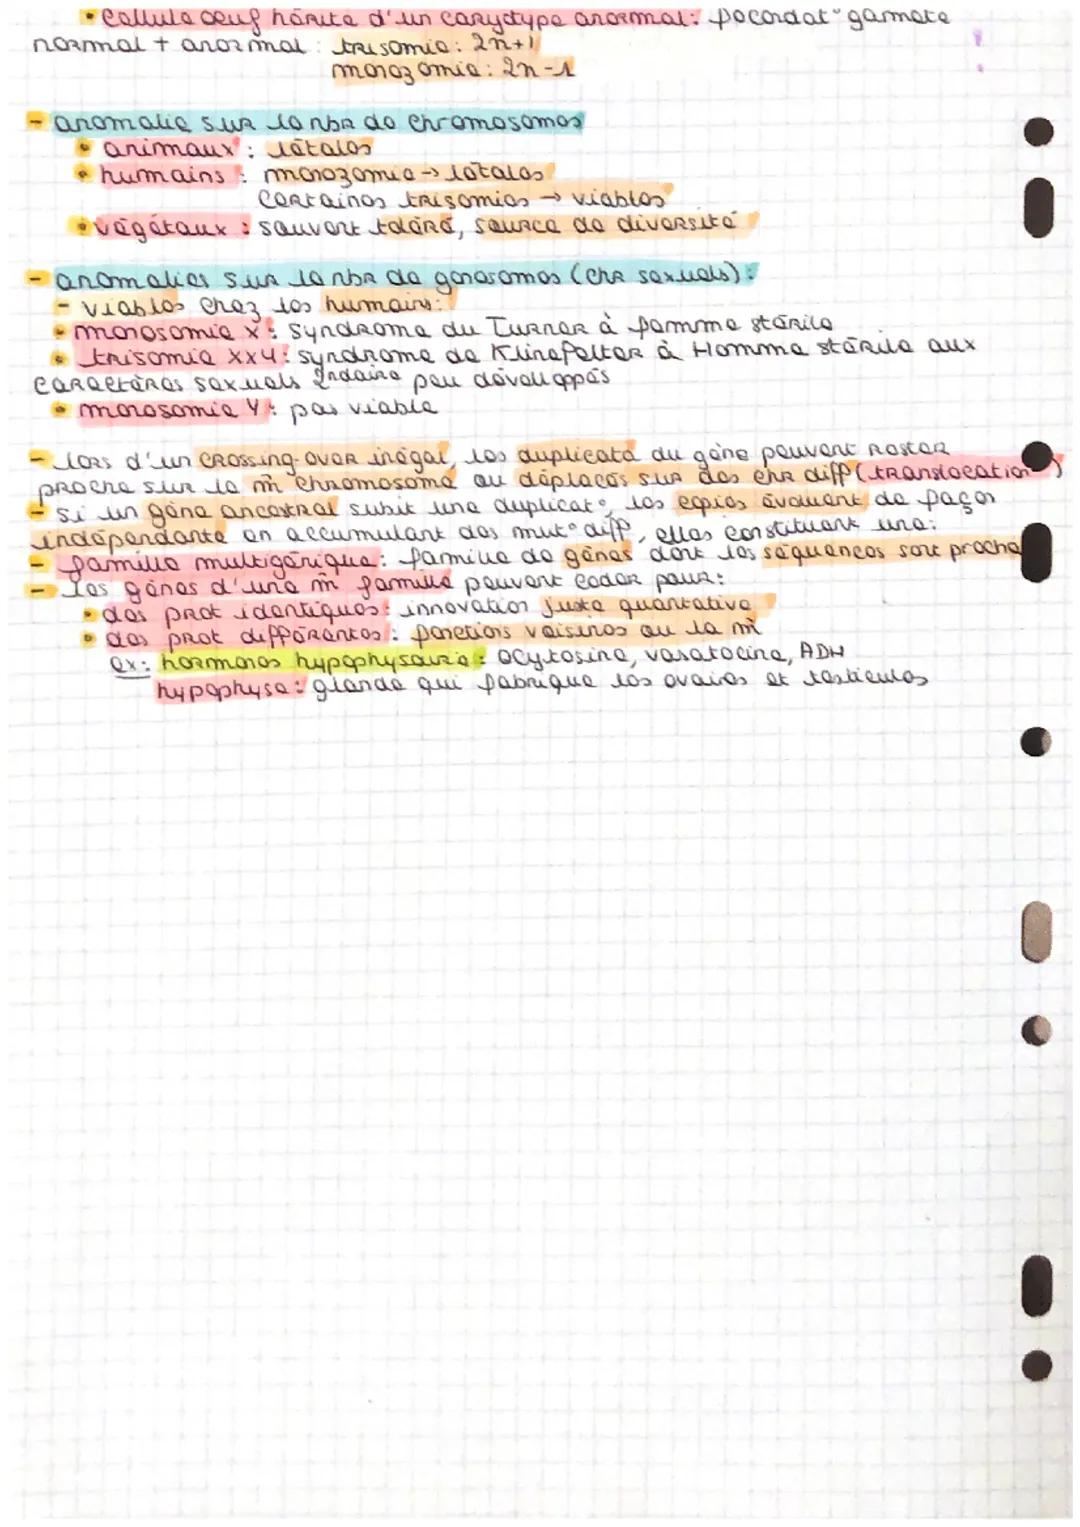 • Cellule oeuf hérite d'un caryotype anormal: fécondat° gamète
normal + anormal : trisomie: 2n+1
monozomie: 2n-1
- anomalie sur le nbr de chromosomes
• animaux : létales
• humains : monozomie → létales
certaines trisomies → viables
• végétaux : souvent toléré, source de diversité
- anomalies sur le nbr de gonosomes (chr sexuels) :
- viables chez les humains:
• monosomie X : syndrome du Turner à femme stérile
• trisomie XXY: syndrome de Klinefelter à Homme stérile aux
caractères sexuels 2ndaire peu développés
• monosomie Y : pas viable
- lors d'un crossing-over inégal, les duplicata du gène peuvent rester
proche sur le m̂ chromosome ou déplacés sur des chr diff (translocation)
- si un gène ancestral subit une duplicat°, les copies évoluent de façon
indépendante en accumulant des mut° diff, elles constituent une:
- famille multigénique: famille de gènes dont les séquences sont proche
- les gènes d'une m̂ famille peuvent coder pour:
• des prot identiques: innovation juste quantative
• des prot différentes : fonctions voisines ou la m̂
ex: hormones hypophysaire : ocytosine, vasotocine, ADH
hypophyse: glande qui fabrique les ovaires et testicules